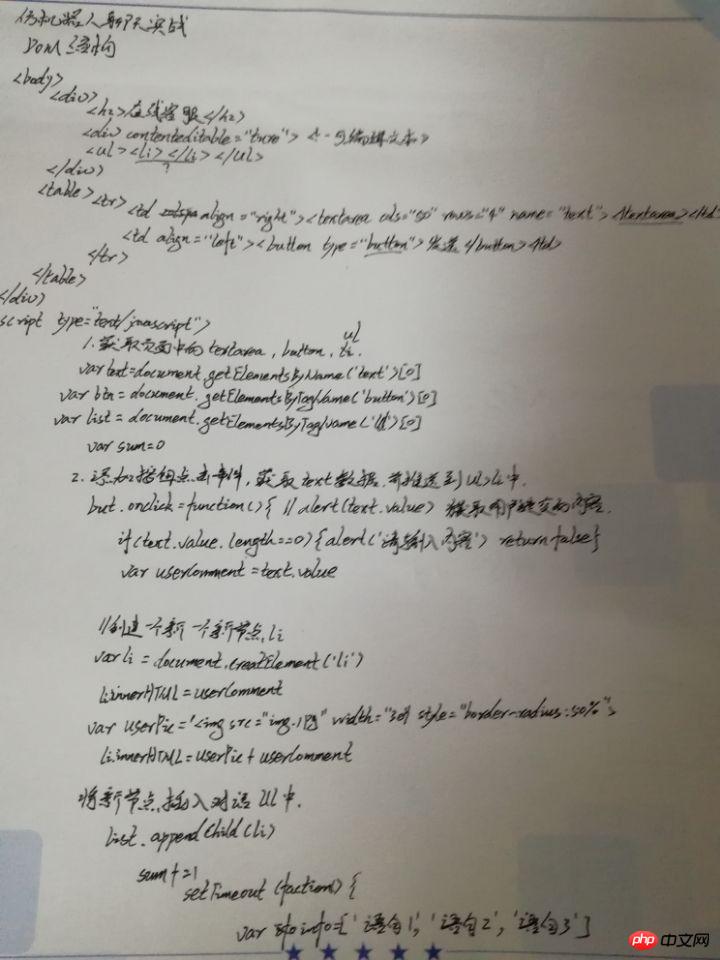 仿机器人聊天实战
DOM结构
<body>
<div>
<h2>在线客服</h2>
<div contenteditable="ture">
<ul><li></li></ul>
?
</div>
<table>
<tr>
<td align="right"><textarea cols="50" rows="4" name="text"></textarea></td>
<td align="left"><button type="button">发送</button></td>
</tr>
</table>
</div>
script type="text/javascript">
ul
1.获取页面中的textarea,button,li.
var text=document.getElementsByName('text')[0]
var btn=document.getElementsByTagName('button')[0]
var list=document.getElementsByTagName('ul')[0]
var sum=0
2.添加按钮点击事件,获取text数据,并推送到ul>li中.
but.onclick=function(){ // alert(text.value) 获取用户提交的内容.
if(text.value.length==0){alert('请输入内容') return false}
var userComment=text.value
//创建一个新一个新节点,li
var li=document.creatElement('li')
li.innerHTML=userComment
var userPic='<img src="img.1pg" width="30" style="border-radius:50%">
li.innerHTML=userPic+userComment
将新节点,插入对话ul中.
list.appendChild(li)
sum+=1
setTimeout(faction(){
var info=['语句1','语句2','语句3']
php中文网